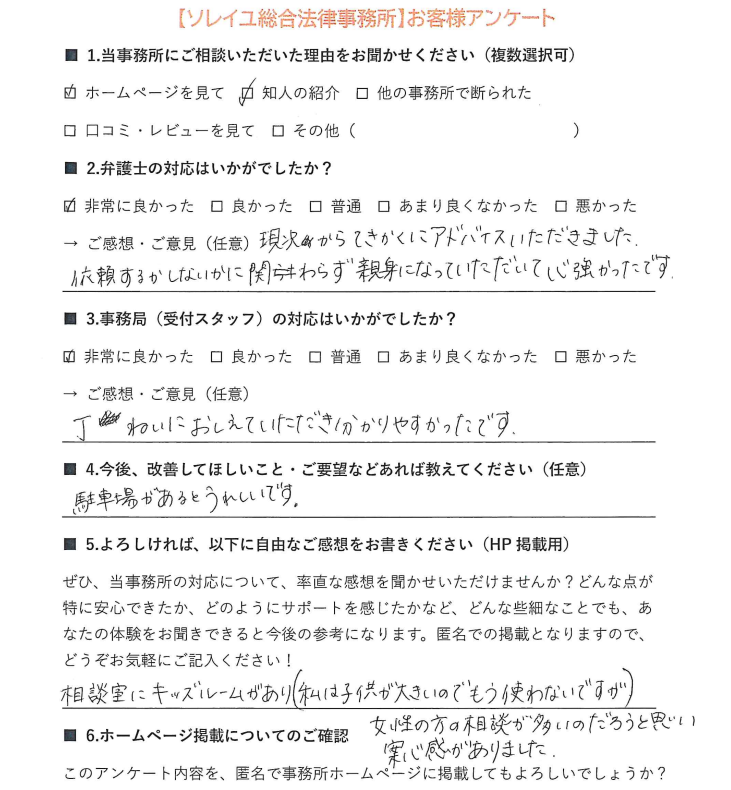 【ソレイユ総合法律事務所】お客様アンケート
■ 1.当事務所にご相談いただいた理由をお聞かせください（複数選択可）
☑ ホームページを見て ☑ 知人の紹介 □ 他の事務所で断られた
□ 口コミ・レビューを見て □ その他（ ）
■ 2.弁護士の対応はいかがでしたか？
☑ 非常に良かった □ 良かった □ 普通 □ あまり良くなかった □ 悪かった
→ ご感想・ご意見（任意）現況からてきかくにアドバイスいただきました.
依頼するかしないかに関わらず親身になっていただいて心強かったです.
■ 3.事務局（受付スタッフ）の対応はいかがでしたか？
☑ 非常に良かった □ 良かった □ 普通 □ あまり良くなかった □ 悪かった
→ ご感想・ご意見（任意）
丁ねいにおしえていただき分かりやすかったです.
■ 4.今後、改善してほしいこと・ご要望などあれば教えてください（任意）
駐車場があるとうれしいです。
■ 5.よろしければ、以下に自由なご感想をお書きください（HP 掲載用）
ぜひ、当事務所の対応について、率直な感想を聞かせいただけませんか？どんな点が
特に安心できたか、どのようにサポートを感じたかなど、どんな些細なことでも、あ
なたの体験をお聞きできると今後の参考になります。匿名での掲載となりますので、
どうぞお気軽にご記入ください！
相談室にキッズルームがあり(私は子供が大きいのでもう使わないですが)
女性の方の相談が多いのだろうと思い
安心感がありました.
■ 6.ホームページ掲載についてのご確認
このアンケート内容を、匿名で事務所ホームページに掲載してもよろしいでしょうか？